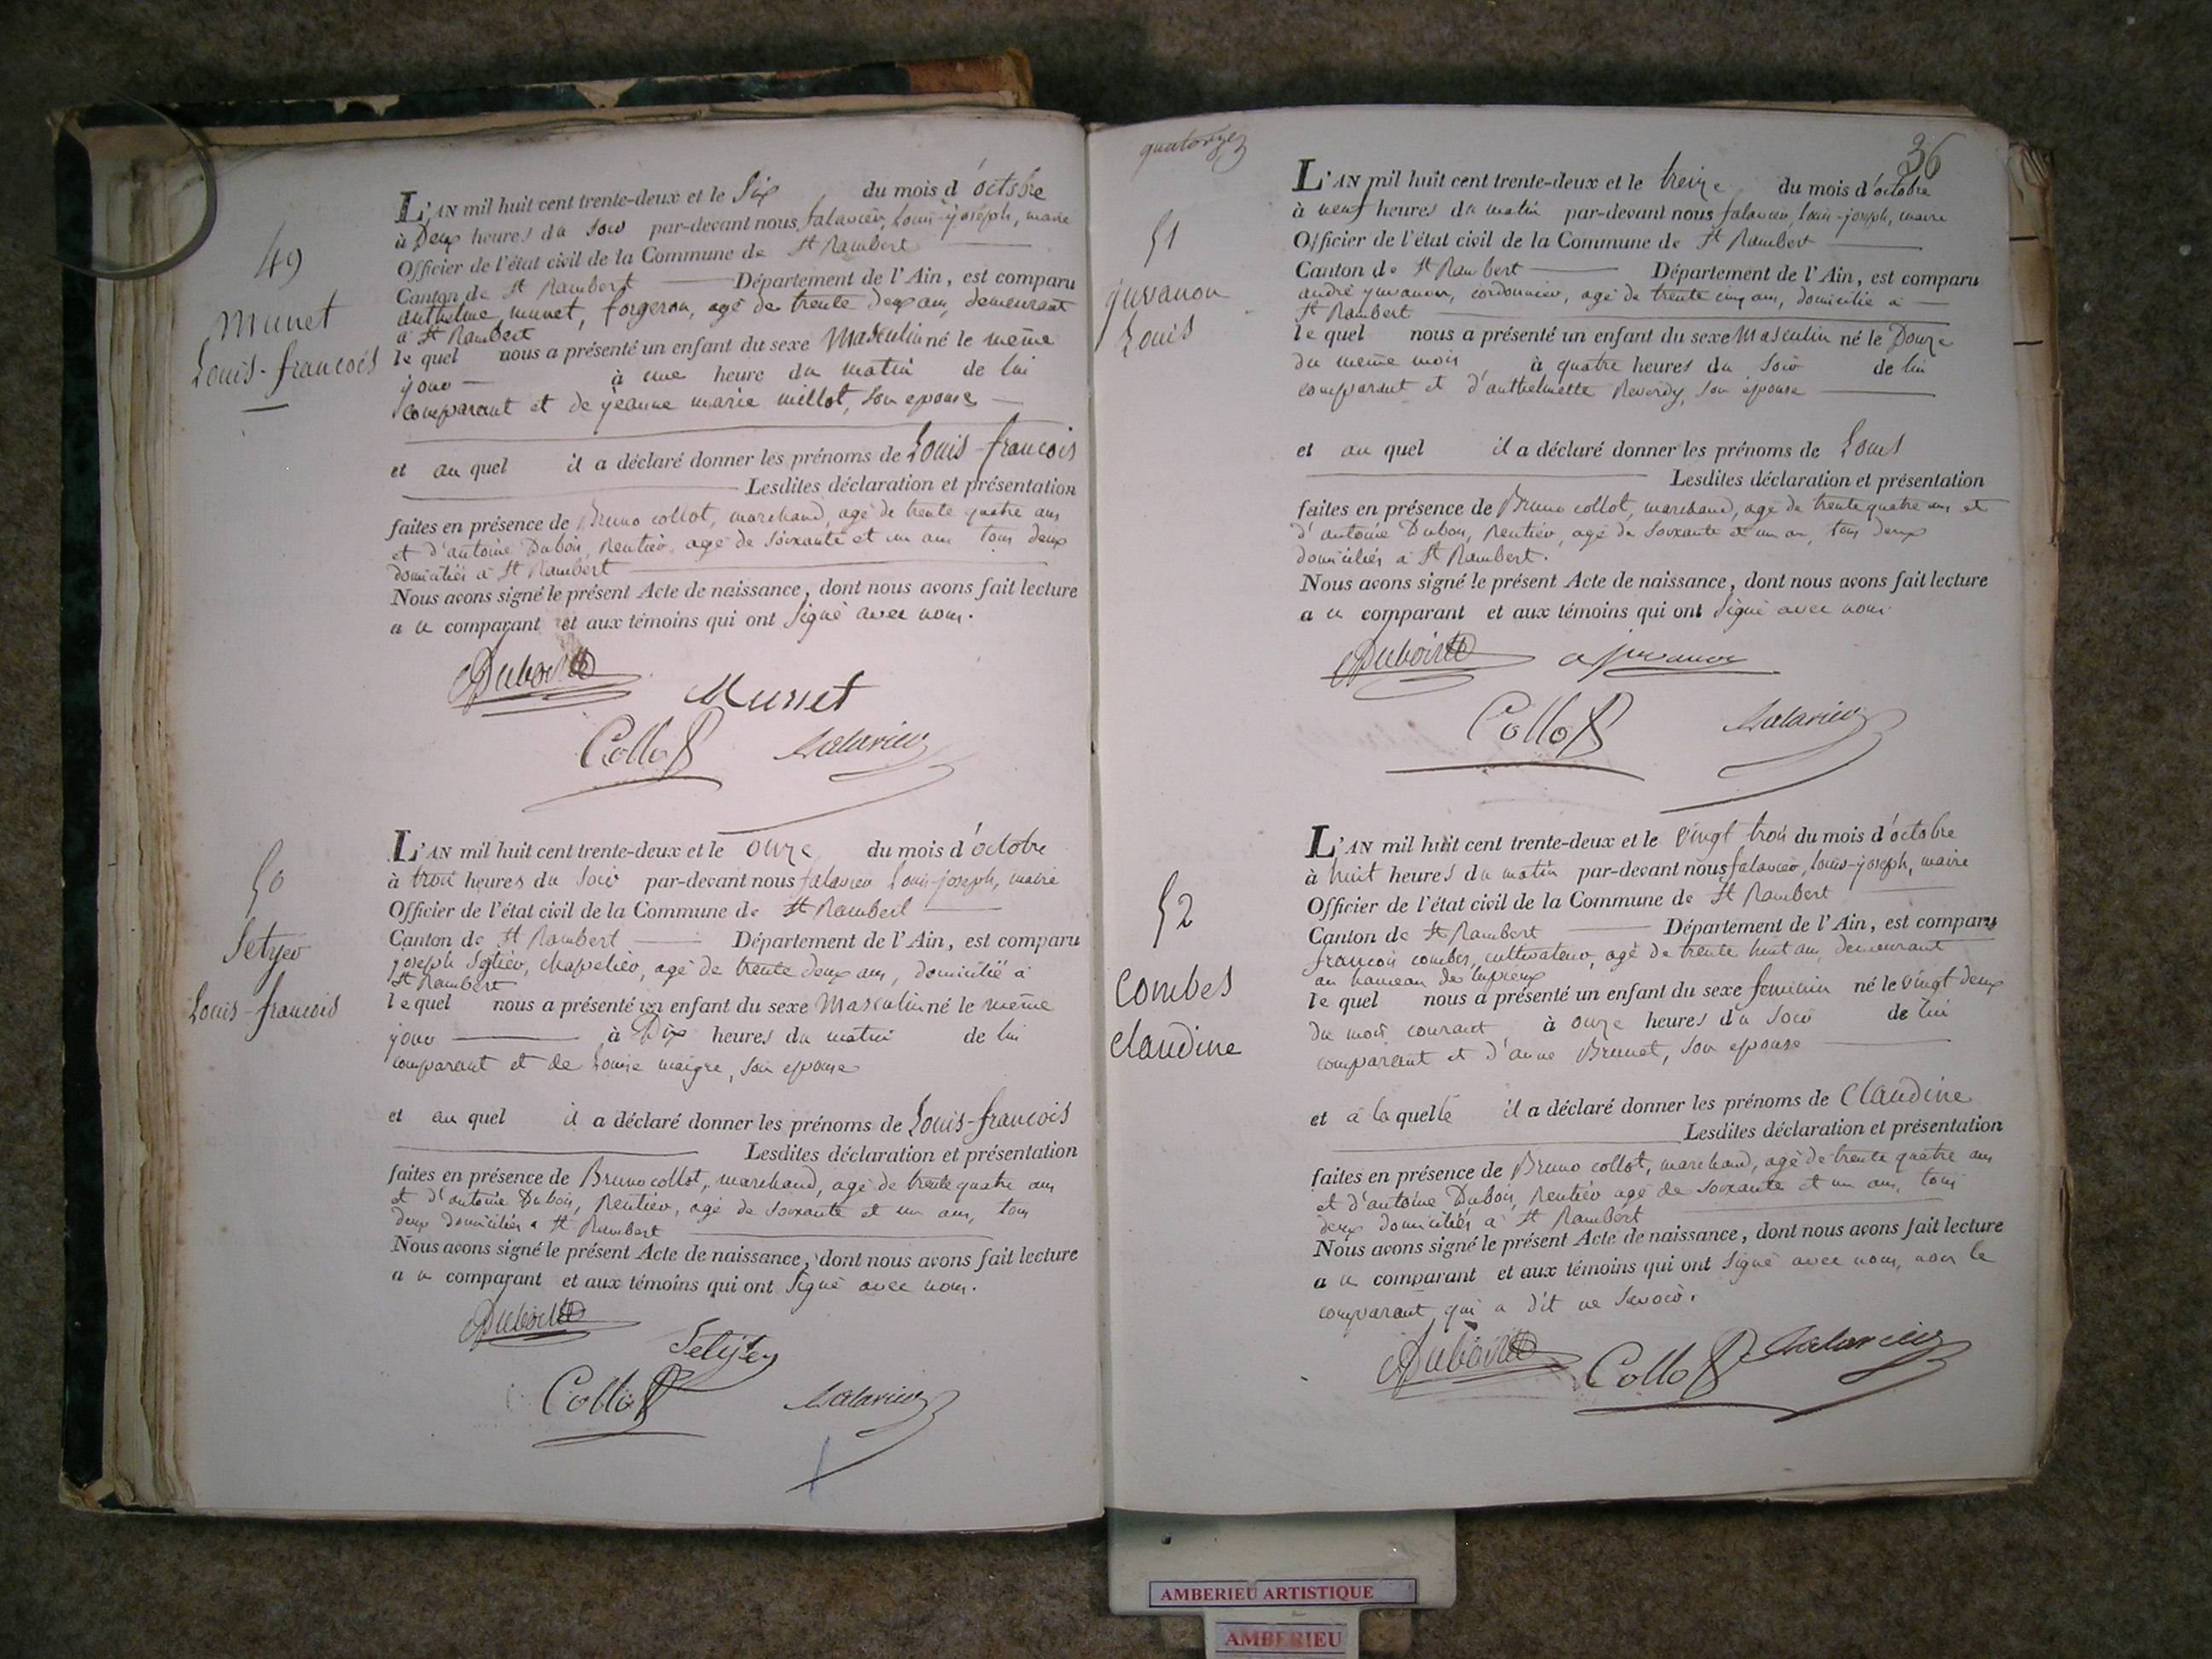 49
Munet
Louis-francois
L'AN mil huit cent trente-deux et le Six du mois d'octobre
à Deux heures du Soir par-devant nous falavier, Louis-joseph, maire
Officier de l'état civil de la Commune de St Rambert
Canton de St Rambert Département de l'Ain, est comparu
anthelme munet, forgeron, agé de trente deux ans, demeurant
a St Rambert
le quel nous a présenté un enfant du sexe Masculin né le même
jour à une heure du matin de lui
comparant et de jeanne marie millot, son epouse
et au quel il a déclaré donner les prénoms de Louis-francois
Lesdites déclaration et présentation
faites en présence de Bruno collot, marchand, agé de trente quatre ans
et d'antoine Dubois, Rentier, agé de soixante et un ans tous deux
domiciliés à St Rambert
Nous avons signé le présent Acte de naissance, dont nous avons fait lecture
a u comparant et aux témoins qui ont Signé avec nous.
Dubois
Munet
Collot
50
Setyer
Louis-francois
L'AN mil huit cent trente-deux et le onze du mois d'octobre
à trois heures du Soir par-devant nous falavier Louis-joseph, maire
Officier de l'état civil de la Commune de St Rambert
Canton de St Rambert Département de l'Ain, est comparu
joseph chapelier, agé de trente deux ans, domicilié à
St Rambert
le quel nous a présenté un enfant du sexe Masculin né le même
jour à Dix heures du matin de lui
comparant et de Louise maigre, son epouse
et au quel il a déclaré donner les prénoms de Louis-francois
Lesdites déclaration et présentation
faites en présence de Bruno collot, marchand, agé de trente quatre ans
et d'antoine Dubois, Rentier, agé de soixante et un ans, tous
deux domiciliés a St Rambert
Nous avons signé le présent Acte de naissance, dont nous avons fait lecture
a u comparant et aux témoins qui ont Signé avec nous.
Dubois
Collot
quatorze
36
51
juvanon
Louis
L'AN mil huit cent trente-deux et le treize du mois d'octobre
à neuf heures du matin par-devant nous falavier, louis-joseph, maire
Officier de l'état civil de la Commune de St Rambert
Canton de St Rambert Département de l'Ain, est comparu
andré juvanon, cordonnier, agé de trente cinq ans, domicilié a
St Rambert
le quel nous a présenté un enfant du sexe Masculin né le Douze
du même mois à quatre heures du Soir de lui
comparant et d'anthelmette Reverdy, son épouse
et au quel il a déclaré donner les prénoms de Louis
Lesdites déclaration et présentation
faites en présence de Bruno collot, marchand, agé de trente quatre ans et
d'antoine Dubois, Rentier, agé de soixante et un an, tous deux
domiciliés à St Rambert.
Nous avons signé le présent Acte de naissance, dont nous avons fait lecture
a u comparant et aux témoins qui ont Signé avec nous
Dubois a juvanon
Collot
52
Combes
claudine
L'AN mil huit cent trente-deux et le vingt trois du mois d'octobre
à huit heures du matin par-devant nous falavier, louis-joseph, maire
Officier de l'état civil de la Commune de St Rambert
Canton de St Rambert Département de l'Ain, est comparu
francois combes, cultivateur, agé de trente huit ans, demeurant
au hameau de
le quel nous a présenté un enfant du sexe feminin né le vingt deux
du mois courant à onze heures du soir de lui
comparant et d'anne Brunet, son epouse
et a la quelle il a déclaré donner les prénoms de Claudine
Lesdites déclaration et présentation
faites en présence de Bruno collot, marchand, agé de trente quatre ans
et d'antoine Dubois, Rentier agé de soixante et un ans, tous
deux domiciliés à St Rambert
Nous avons signé le présent Acte de naissance, dont nous avons fait lecture
a u comparant et aux témoins qui ont signé avec nous, non le
comparant qui a dit ne savoir.
Dubois Collot
AMBERIEU ARTISTIQUE
AMBERIEU